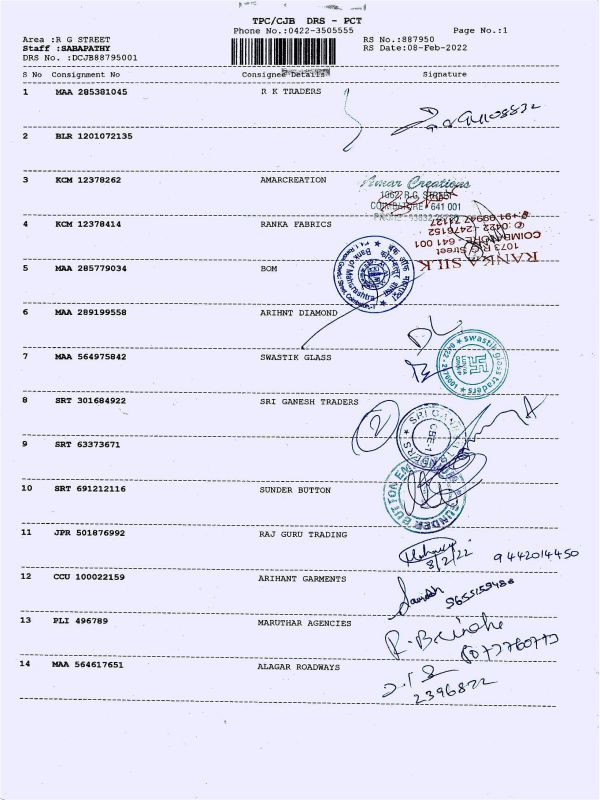 TPC/CJB DRS - PCT
Phone No.:0422-3505555
Page No.:1
Area :R G STREET
RS No.:887950
Staff :SABAPATHY
RS Date:08-Feb-2022
DRS No. :DCJB88795001
S No Consignment No Consignee Details Signature
1 MAA 285381045 R K TRADERS
2 BLR 1201072135
3 KCM 12378262 AMARCREATION
Amar Creations
COIMBATORE - 641 001
4 KCM 12378414 RANKA FABRICS
RANKA SILK
1073 R.G. Street
COIMBATORE - 641 001
5 MAA 285779034 BOM
Bank of Maharashtra
6 MAA 289199558 ARIHNT DIAMOND
7 MAA 564975842 SWASTIK GLASS
swastik glass traders
8 SRT 301684922 SRI GANESH TRADERS
2
CBE-1
9 SRT 63373671
10 SRT 691212116 SUNDER BUTTON
SUNDER BUTTON
11 JPR 501876992 RAJ GURU TRADING
8/2/22 9442014450
12 CCU 100022159 ARIHANT GARMENTS
13 PLI 496789 MARUTHAR AGENCIES
14 MAA 564617651 ALAGAR ROADWAYS